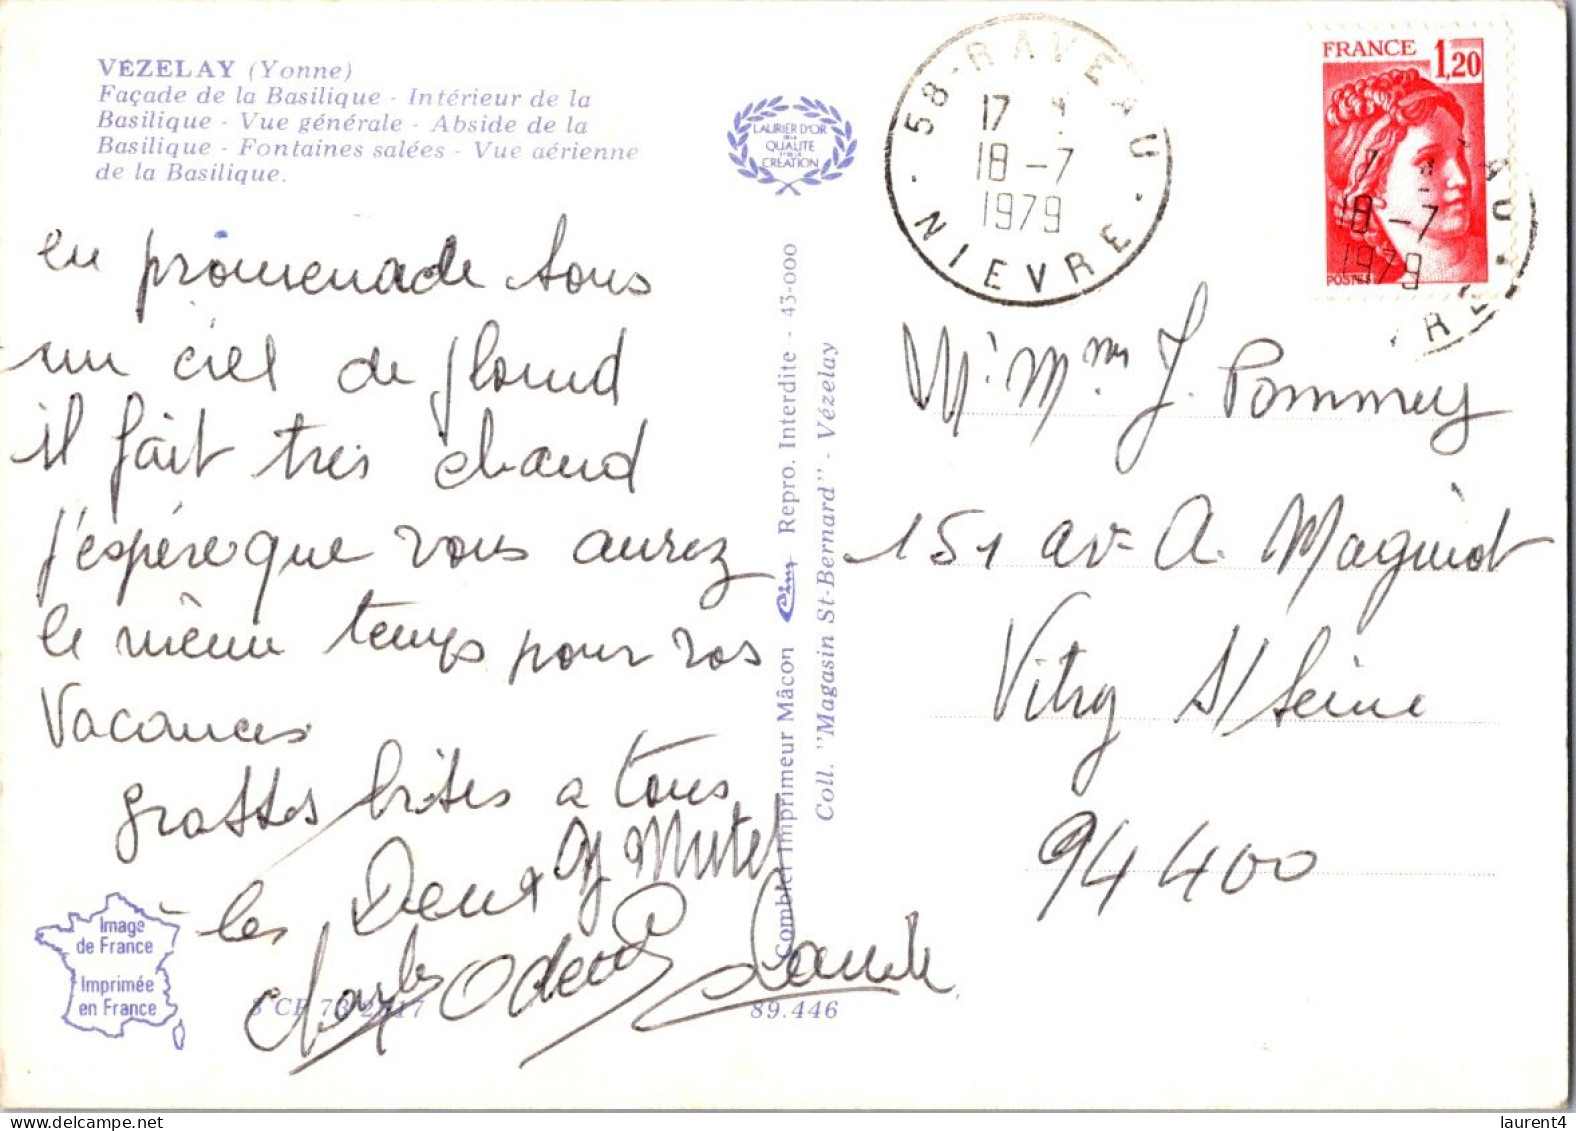 VÉZELAY (Yonne)
Façade de la Basilique - Intérieur de la
Basilique - Vue générale - Abside de la
Basilique - Fontaines salées - Vue aérienne
de la Basilique.
LAURIER D'OR
DE LA
QUALITE
ET DE LA
CREATION
58 - RAVEAU
17
18 - 7
1979
NIEVRE
FRANCE 1,20
POSTES
18 - 7
1979
en promenade sous
un ciel de plomd
il fait tres chaud
j'espére que vous aurez
le même temps pour vos
Vacances
grosses bises a tous
les Deux
Odette
Mr Mme J. Pommey
151 av= A. Maguiot
Vitry S/Seine
94400
Combier Imprimeur Mâcon Cim Repro. Interdite - 43-000
Coll. "Magasin St-Bernard" - Vézelay
Image
de France
Imprimée
en France
89.446
laurent4